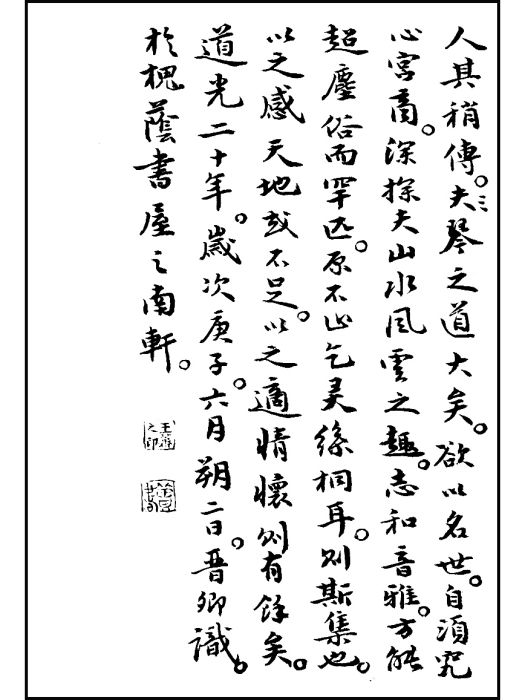 人其稍傳。夫琴之道大矣。欲以名世。自須究
心宮商。深探夫山水風雲之趣。志和音雅。方能
超塵俗而罕匹。原不止乞灵絲桐耳。则斯集也。
以之感天地或不足。以之適情懷则有餘矣。
道光二十年。歲次庚子。六月朔二日。晋卿識。
於槐蔭書屋之南軒。